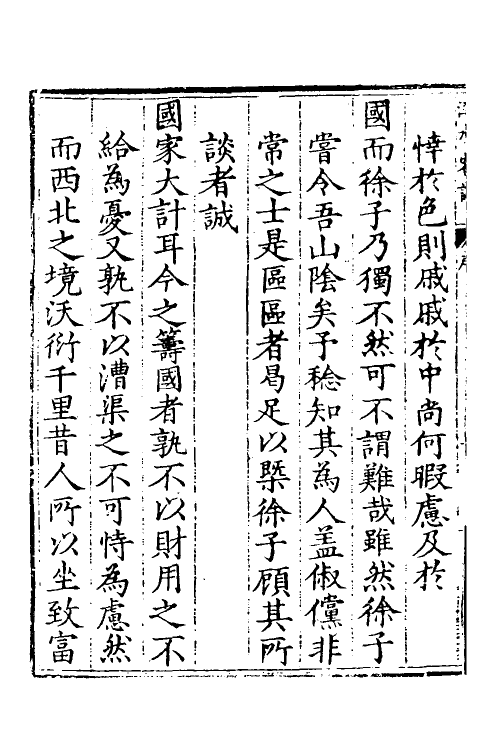 悻於色則戚戚於中尚何暇慮及於
國而徐子乃獨不然可不謂難哉雖然徐子
嘗令吾山陰矣予稔知其為人盖俶儻非
常之士是區區者曷足以槩徐子顧其所
談者誠
國家大計耳今之籌國者孰不以財用之不
給為憂又孰不以漕渠之不可恃為慮然
而西北之境沃衍千里昔人所以坐致富